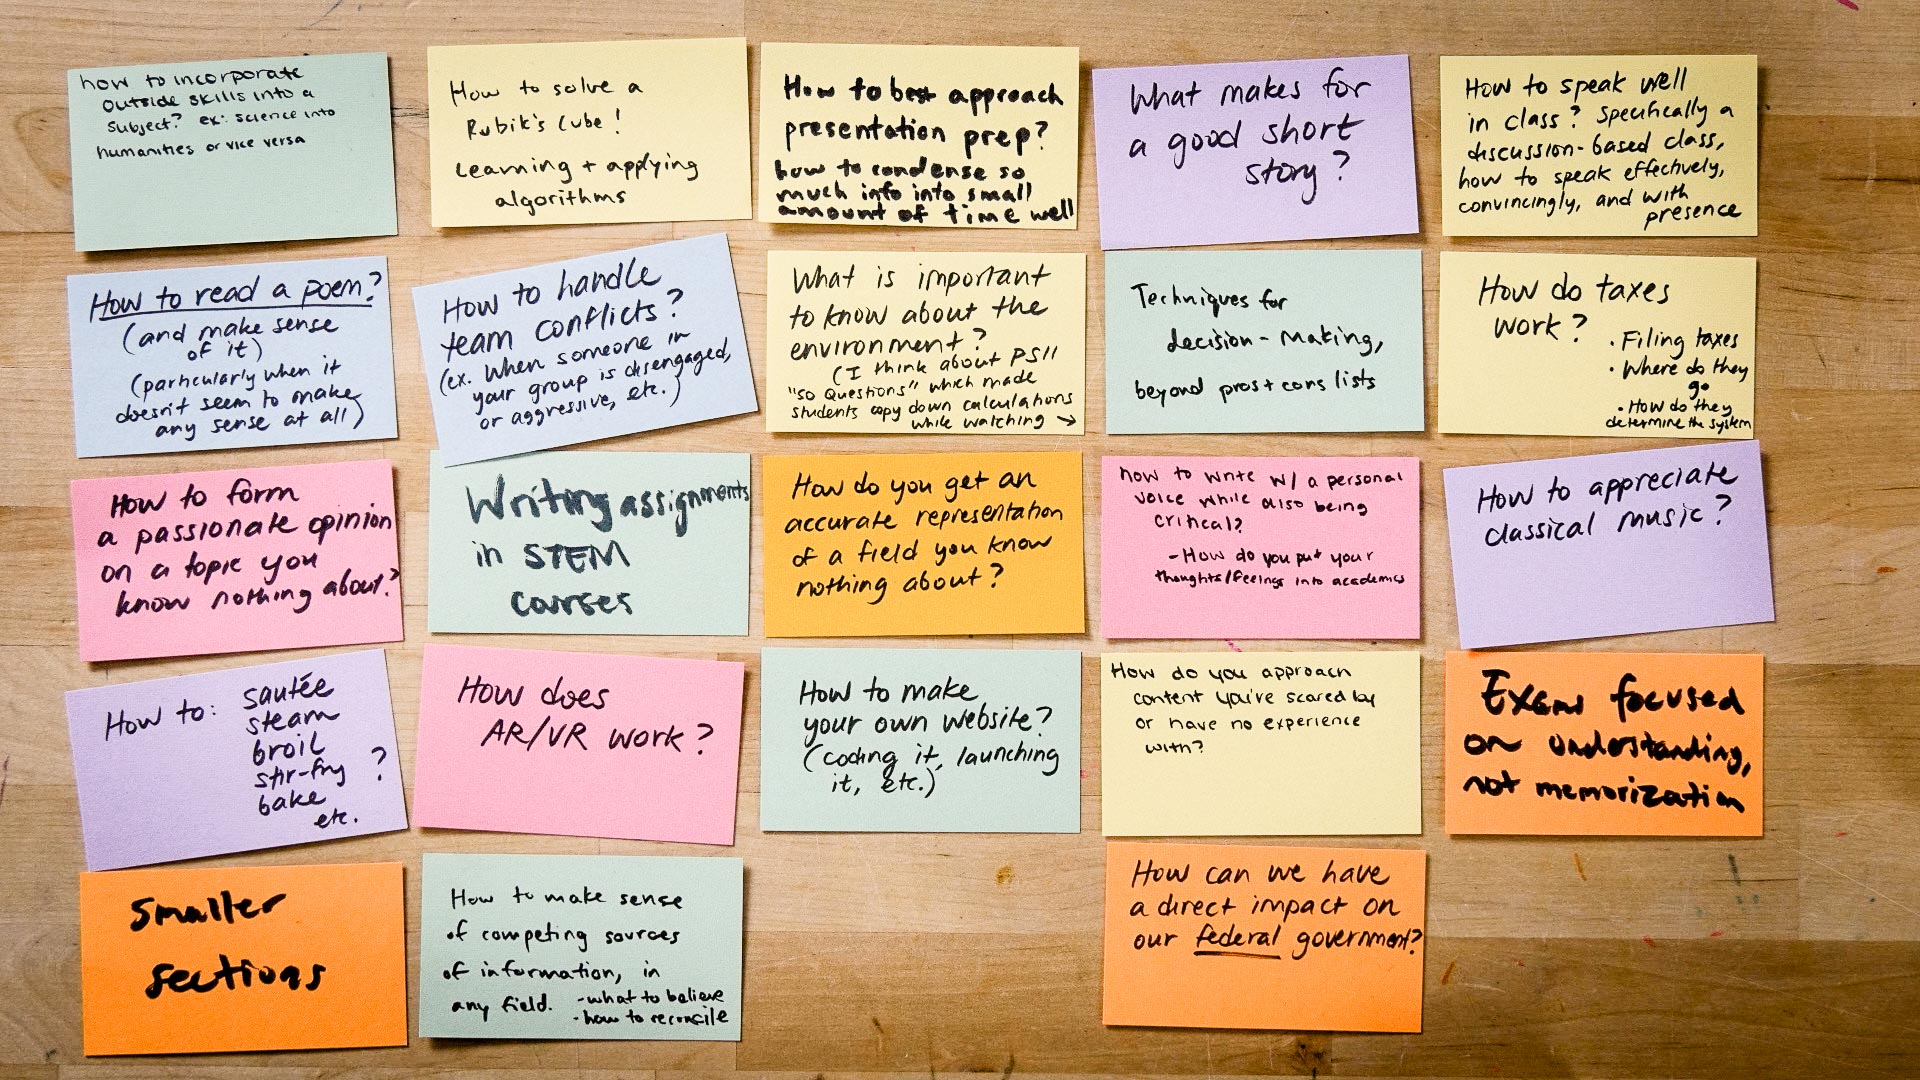 how to incorporate
outside skills into a
subject? ex: science into
humanities or vice versa
How to solve a
Rubik's Cube!
Learning + applying
algorithms
How to best approach
presentation prep?
how to condense so
much info into small
amount of time well
What makes for
a good short
story?
How to speak well
in class? Specifically a
discussion-based class,
how to speak effectively,
convincingly, and with
presence
How to read a poem?
(and make sense
of it)
(particularly when it
doesn't seem to make
any sense at all)
How to handle
team conflicts?
(ex. When someone in
your group is disengaged,
or aggressive, etc.)
What is important
to know about the
environment?
(I think about PS11
"so Questions" which made
students copy down calculations
while watching →
Techniques for
decision-making,
beyond pros + cons lists
How do taxes
work?
• Filing taxes
• Where do they
go
• How do they
determine the system
How to form
a passionate opinion
on a topic you
know nothing about?
Writing assignments
in STEM
courses
How do you get an
accurate representation
of a field you know
nothing about?
how to write w/ a personal
voice while also being
critical?
- How do you put your
thoughts/feelings into academics
How to appreciate
classical music?
How to: sautée
steam
broil
stir-fry ?
bake
etc.
How does
AR/VR work?
How to make
your own website?
(coding it, launching
it, etc.)
How do you approach
content you've scared by
or have no experience
with?
Exams focused
on understanding,
not memorization
Smaller
sections
How to make sense
of competing sources
of information, in
any field. - what to believe
- how to reconcile
How can we have
a direct impact on
our federal government?